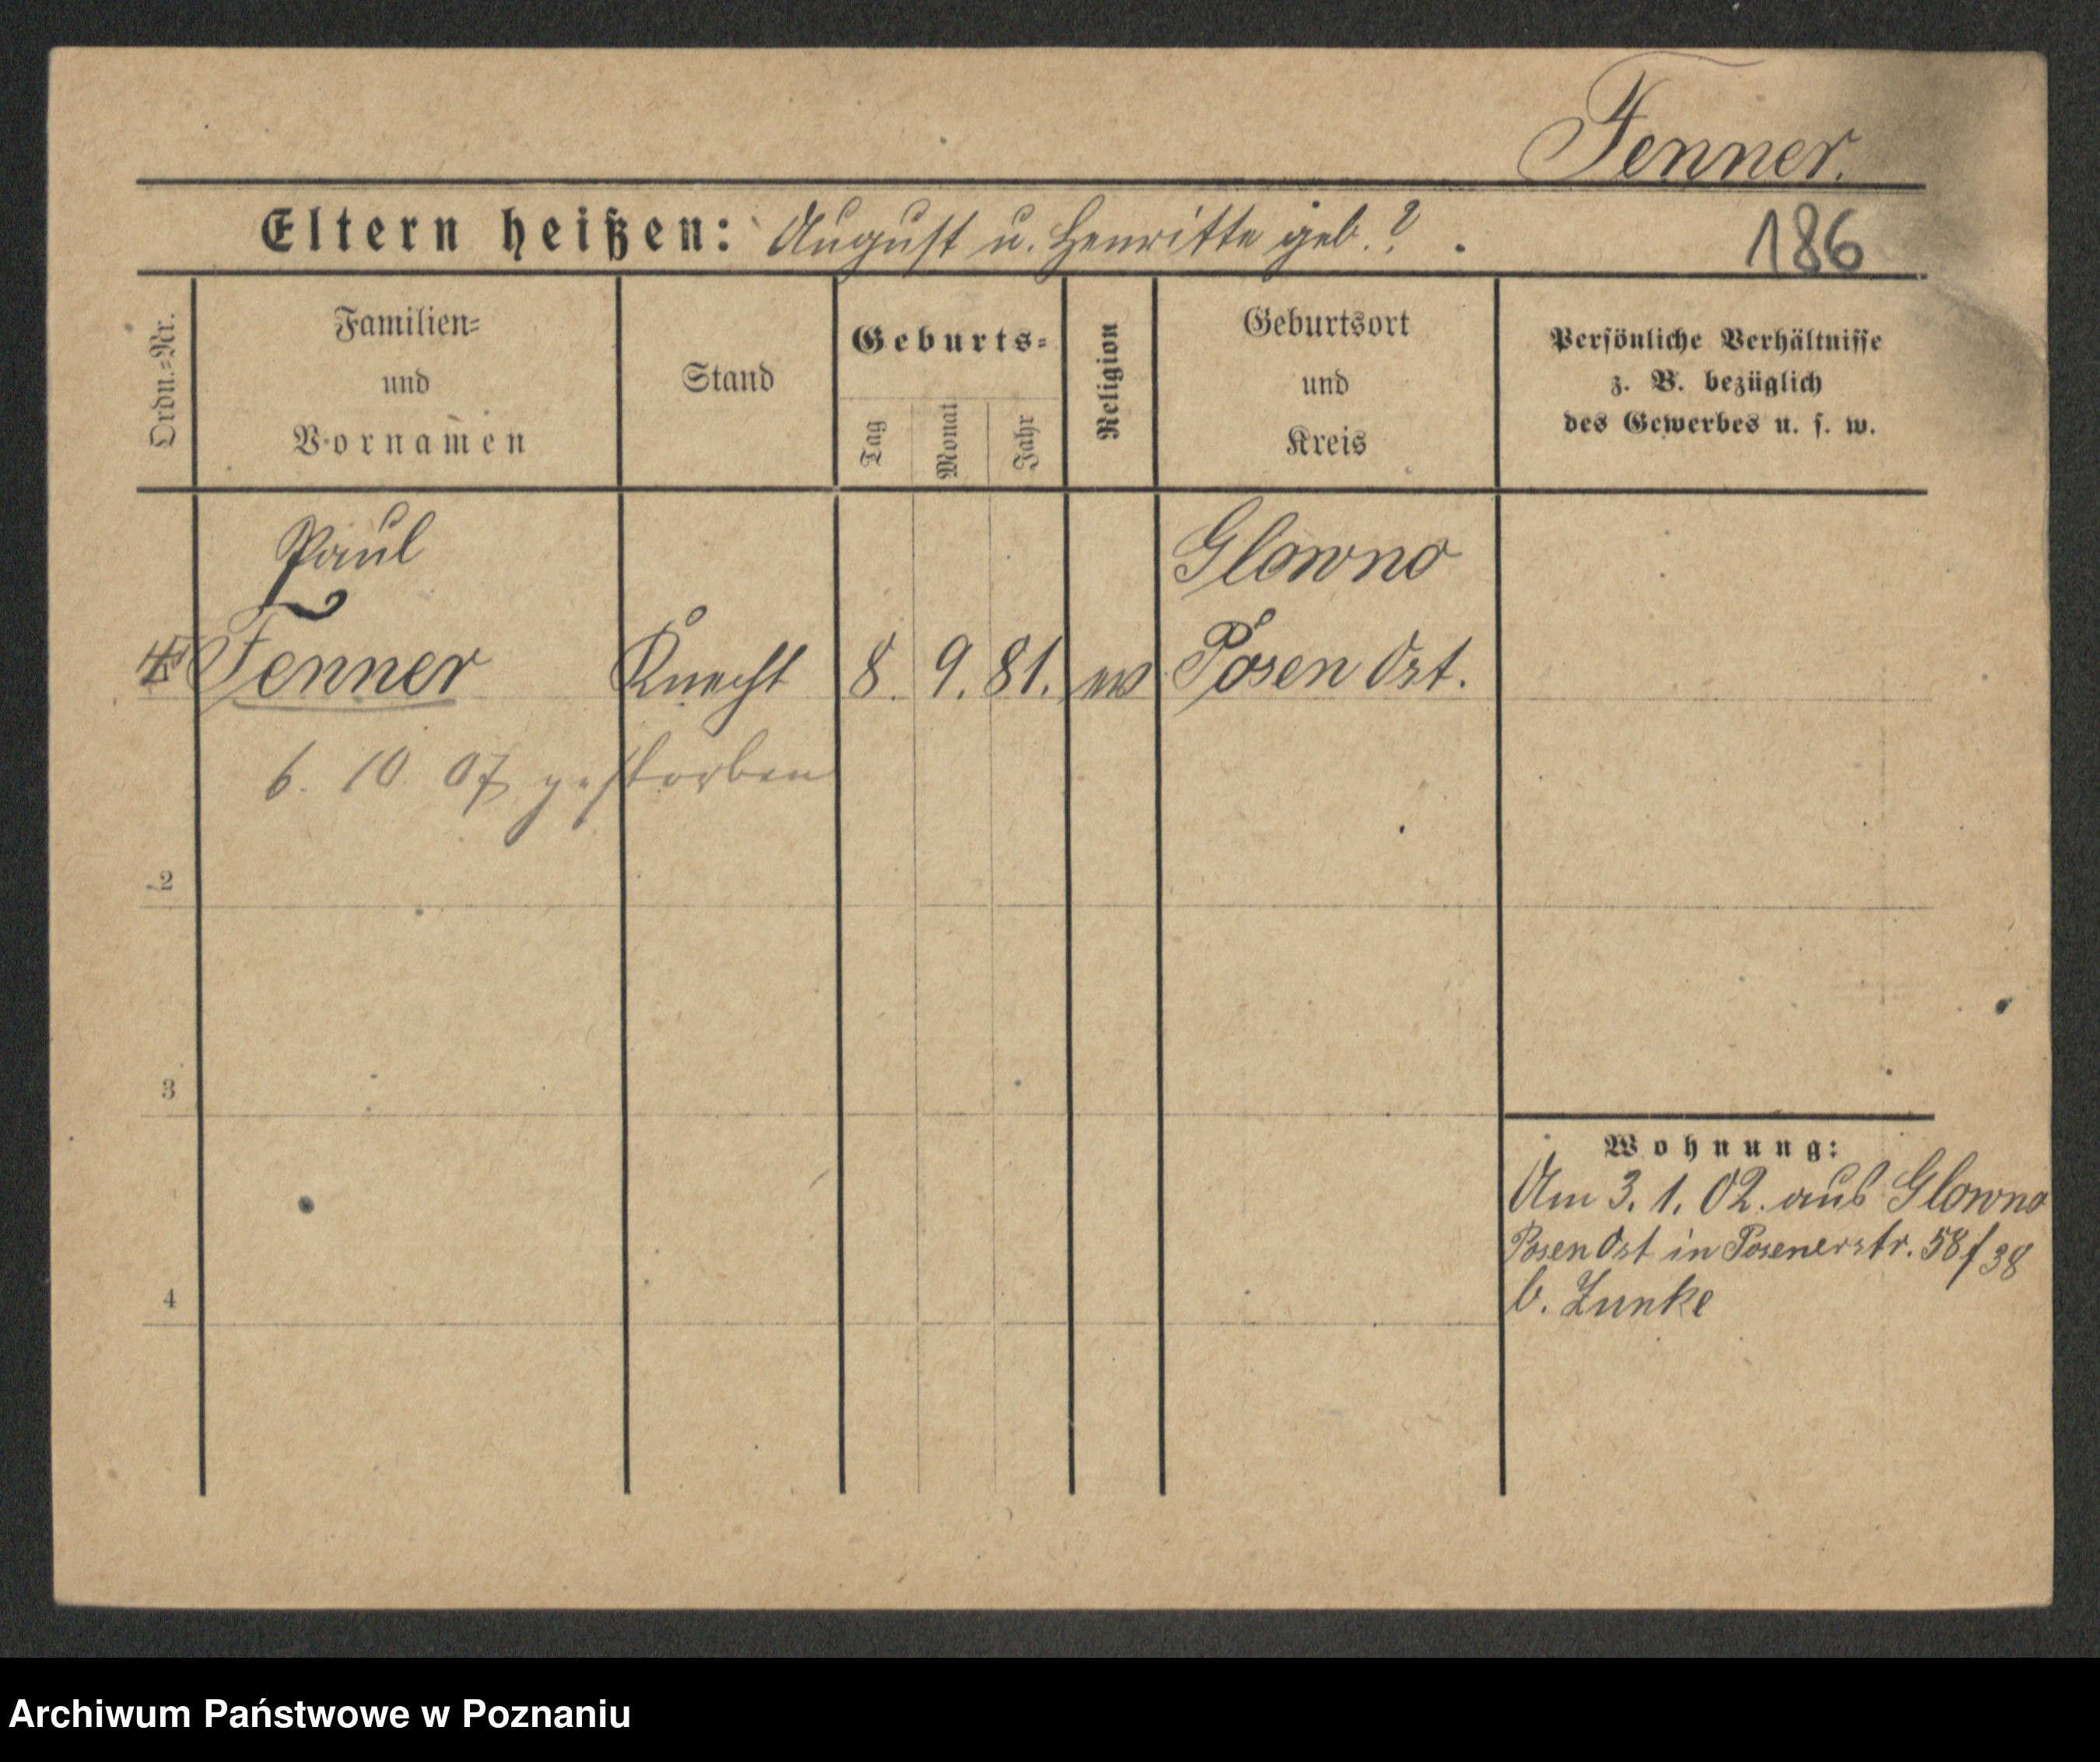 Fenner.
Eltern heißen: August u. Henritte geb. ? .
186
Ordn.=Nr.
Familien=
und
Vornamen
Stand
Geburts=
Tag
Monat
Jahr
Religion
Geburtsort
und
Kreis
Persönliche Verhältnisse
z. B. bezüglich
des Gewerbes u. s. w.
Paul
Glowno
Fenner Knecht 8. 9. 81. ev Posen Ost.
6. 10. 07 gestorben
2
3
Wohnung:
Am 3. 1. 02. aus Glowno
Posen Ost in Posenerstr. 58 f 38
4
b. Zunke
Archiwum Państwowe w Poznaniu